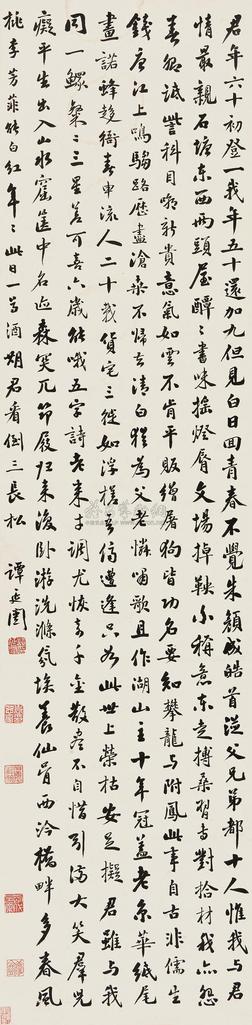 君年六十初登一我年五十還加九但見白日回青春不覺朱顏成皓首從父兄弟都十人惟我與君
情最親石塘東西兩頭屋醰醰書味搖燈脣文場掉鞅小稱意東走搏桑習専對拾材我亦怨
善仰詆諆科目嘲新貴意氣如雲不肯平販繒屠狗皆功名要知攀龍與附鳳此事自古非儒生
錢唐江上鳴騶路歷盡滄桑不歸去清白猶為父老憐嘯歌且作湖山主十年冠蓋老京華紙尾
畫諾蜂趁衙春申流人二十載貨宅三徙如浮槎吾儕遭逢只如此世上榮枯安足擬君雖與我
同一鰥粲粲三星差可喜六歲能哦五字詩老來才調尤恢奇千金散盡不自惜引滿大笑羣兒
癡平生出入山水窟篋中名迹森突兀節屐歸來後臥游洗滌氛埃養仙骨西泠橋畔多春風
桃李芳菲能白紅年年此日一尊酒朔君看倒三長松
譚延闓